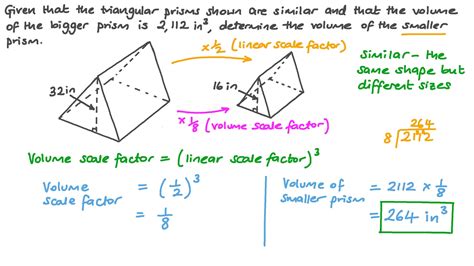 Given that the triangular prisms shown are similar and that the volume
of the bigger prism is 2,112 in³, determine the volume of the smaller
prism.
x ½ (linear scale factor)
32in
16in
x ⅛ (volume scale factor)
Similar - the
same shape but
different sizes
264
8 2112
Volume scale factor = (linear scale factor)³
Volume scale factor = (1/2)³
= 1/8
Volume of smaller prism = 2112 x 1/8
= 264 in³